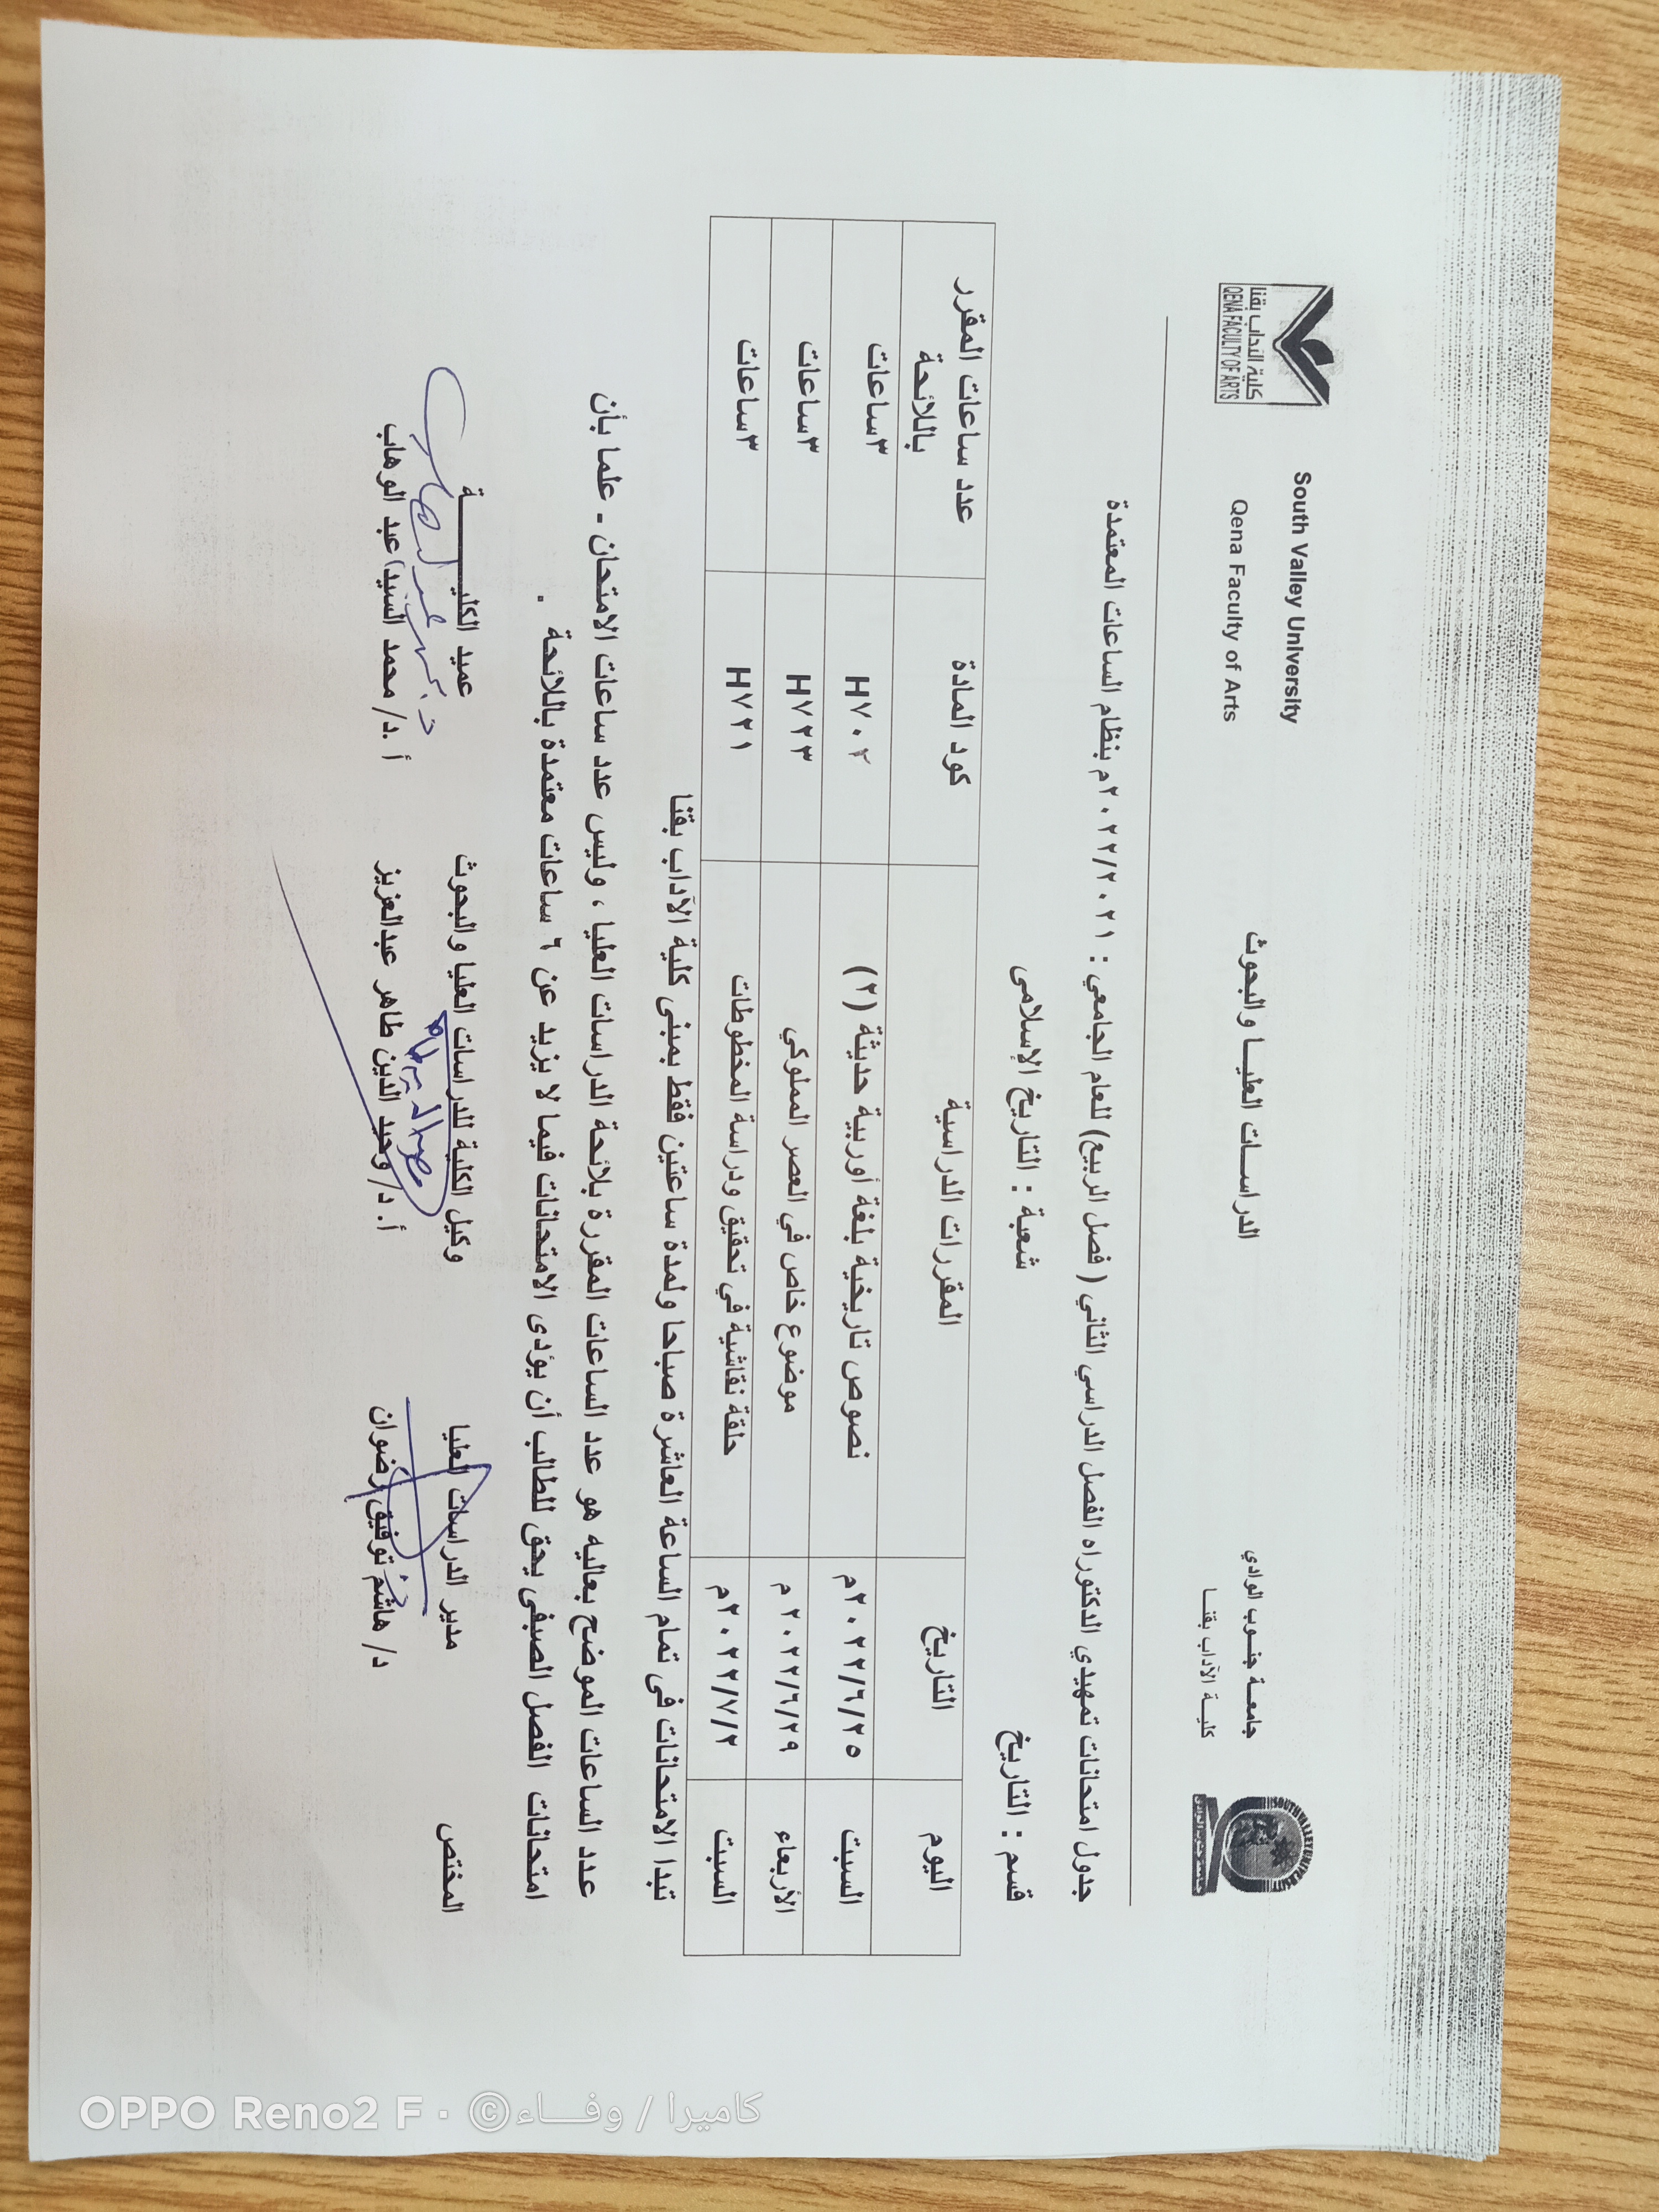 جامعة جنوب الوادي
كلية الآداب بقنا
الدراسات العليا والبحوث
South Valley University
Qena Faculty of Arts
كلية الآداب بقنا
QENA FACULTY OF ARTS
SOUTH VALLEY UNIVERSITY
جدول امتحانات تمهيدي الدكتوراه الفصل الدراسي الثاني ( فصل الربيع) للعام الجامعي : ٢٠٢٢/٢٠٢١م بنظام الساعات المعتمدة
قسم : التاريخ شعبة : التاريخ الإسلامى
اليوم التاريخ المقررات الدراسية كود المادة عدد ساعات المقرر باللائحة
السبت ٢٠٢٢/٦/٢٥م نصوص تاريخية بلغة أوربية حديثة (٢) H٧٠٢ ٣ساعات
الأربعاء ٢٠٢٢/٦/٢٩ م موضوع خاص في العصر المملوكي H٧٢٣ ٣ساعات
السبت ٢٠٢٢/٧/٢م حلقة نقاشية في تحقيق ودراسة المخطوطات H٧٢١ ٣ساعات
تبدا الامتحانات فى تمام الساعة العاشرة صباحا ولمدة ساعتين فقط بمبنى كلية الآداب بقنا
عدد الساعات الموضح بعاليه هو عدد الساعات المقررة بلائحة الدراسات العليا ، وليس عدد ساعات الامتحان - علما بأن
امتحانات الفصل الصيفى يحق للطالب أن يؤدى الامتحانات فيما لا يزيد عن ٦ ساعات معتمدة باللائحة .
المختص مدير الدراسات العليا وكيل الكلية للدراسات العليا والبحوث عميد الكليـــــــة
د/ هاشم توفيق رضوان أ. د/ وحيد الدين طاهر عبدالعزيز أ .د/ محمد السيد عبد الوهاب
OPPO Reno2 F · © كاميرا / وفـــاء